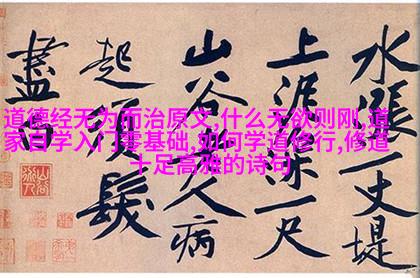 水漲一丈堤
上泥深一尺
山谷老人病
起須髮
盡白
道德经无为而治原文,什么无欲则刚,道
家自学入门零基础,如何学道修行,修道
十足高雅的诗句